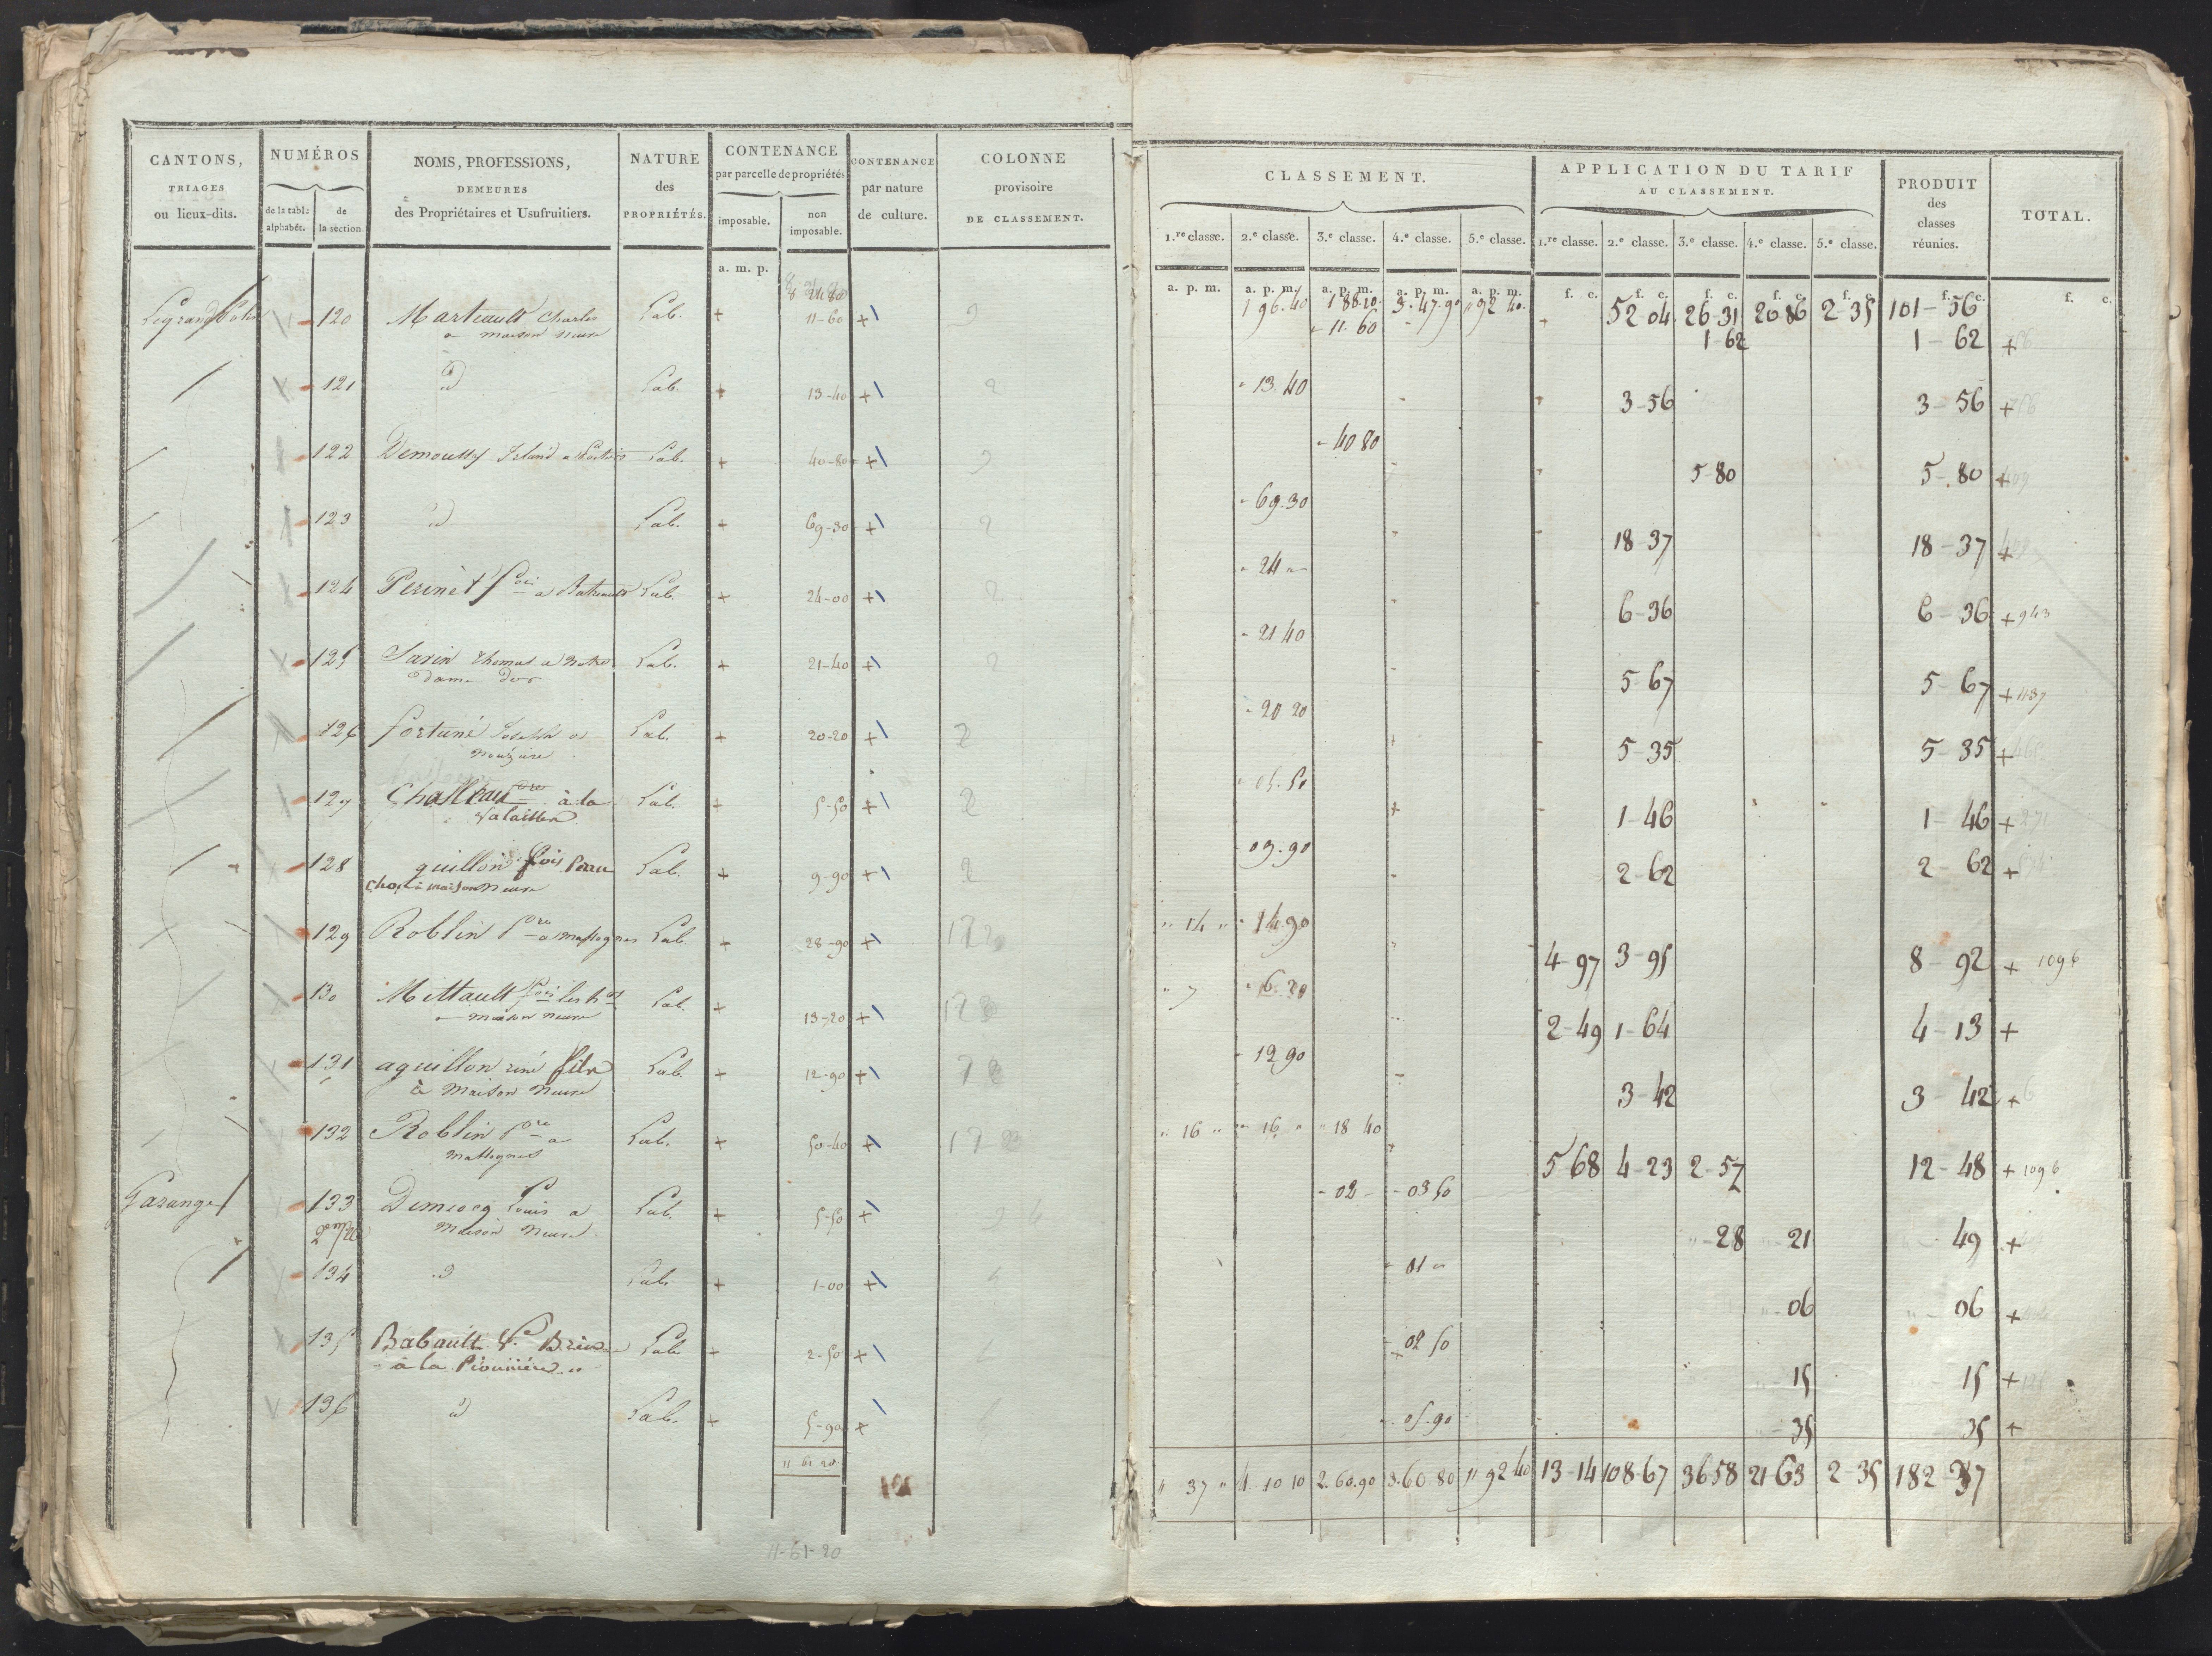 CANTONS, TRIAGES ou lieux-dits.
NUMÉROS
de la tabl. alphabét.
de la section
NOMS, PROFESSIONS, DEMEURES des Propriétaires et Usufruitiers.
NATURE des PROPRIÉTÉS.
CONTENANCE par parcelle de propriétés
imposable.
non imposable.
CONTENANCE par nature de culture.
COLONNE provisoire DE CLASSEMENT.
CLASSEMENT.
1.re classe. 2.e classe. 3.e classe. 4.e classe. 5.e classe.
APPLICATION DU TARIF AU CLASSEMENT.
1.re classe. 2.e classe. 3.e classe. 4.e classe. 5.e classe.
PRODUIT des classes réunies.
TOTAL.
a. m. p.
a. p. m. a. p. m. a. p. m. a. p. m. a. p. m. f. c. f. c. f. c. f. c. f. c. f. c. f. c.
1 96.40 1 88.20 3.47.90 " 92 40 52 04 26-31 20 86 2-35 101-56
120 Marteault Charles Lab. + 11-60 + - 11.60 1-62 1-62 +
a maison neuve
121 id Lab. + 13-40 + 2 - 13.40 3-56 3-56 +
122 Demoussy Lab. + 40-80 + - 40 80 5-80 5-80 +
123 id Lab. + 69-30 + 2 - 69.30 18 37 18-37 +
124 Perinet fois a Lab. + 24-00 + 2 - 24 " 6-36 6-36 + 943
125 Sarin Thomas a notre Lab. + 21-40 + 2 - 21 40 5-67 5-67 + 437
dame d'or
126 fortuné Joseph a Lab. + 20-20 + 2 - 20 20 5-35 5-35 +
127 à la Lab. + 5-50 + 2 05.50 1-46 1-46 +
128 guillon fois Lab. + 9-90 + 2 09.90 2-62 2-62 +
maison neuve
129 Roblin Pre a massognes Lab. + 28-90 + " 14 " - 14.90 4-97 3-95 8-92 + 1096
130 Mittault fois Lab. + 13-20 + " 7 - 6.20 2-49 1-64 4-13 +
a maison neuve
131 aguillon réné fils Lab. + 12-90 + - 12 90 3-42 3-42 +
à Maison Neuve
132 Roblin Pre a Lab. + 50-40 + " 16 " - 16 " " 18 40 5-68 4-23 2-57 12-48 + 1096
massognes
133 Demiocq Louis a Lab. + 5-50 + - 02 - - 03 50 " 28 " 21 49 +
Maison Neuve
134 id Lab. + 1-00 + 01 " 06 06 +
135 Babault Ve Lab + 2-50 + 02 50 15 15 +
à la
136 id Lab. + 5-90 + 05.90 35 35 +
11 61 20 " 37 " 4 10 10 2.60.90 3.60.80 " 92 40 13-14 108-67 36 58 21 63 2-35 182-37
11-61-20